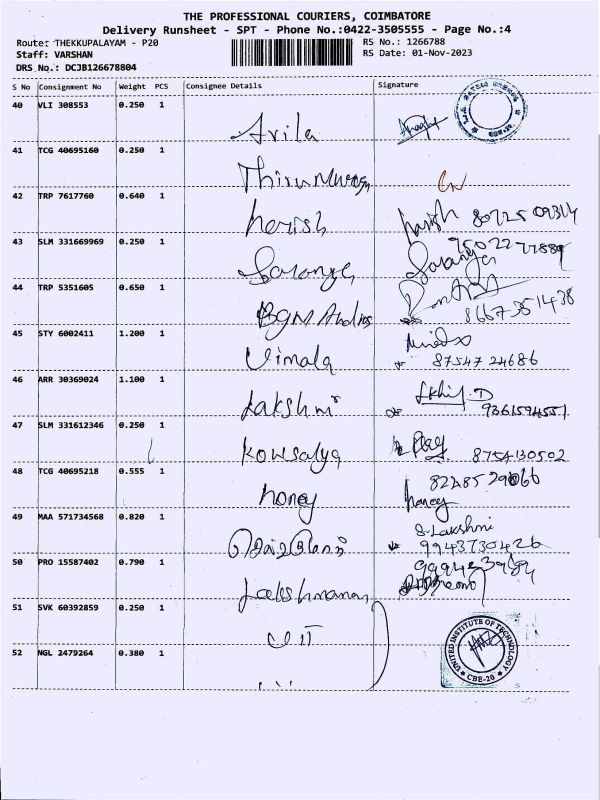 THE PROFESSIONAL COURIERS, COIMBATORE
Delivery Runsheet - SPT - Phone No.:0422-3505555 - Page No.:4
Route: THEKKUPALAYAM - P20 RS No.: 1266788
Staff: VARSHAN RS Date: 01-Nov-2023
DRS No.: DCJB126678804
S No Consignment No Weight PCS Consignee Details Signature
40 VLI 308553 0.250 1
Arila
41 TCG 40695160 0.250 1
Thirumurugan
42 TRP 7617760 0.640 1
harish harish
43 SLM 331669969 0.250 1
9502277889
Saranya Saranya
44 TRP 5351605 0.650 1
8667351438
45 STY 6002411 1.200 1
Vimala 87547 24686
46 ARR 30369024 1.100 1
Lakshmi 9361594557
47 SLM 331612346 0.250 1
Kowsalya 8754130502
48 TCG 40695218 0.555 1
honey honey
49 MAA 571734568 0.820 1
S. Lakshmi
9943730426
50 PRO 15587402 0.790 1
Lakshmanan
51 SVK 60392859 0.250 1
UIT
52 NGL 2479264 0.380 1
UNITED INSTITUTE OF TECHNOLOGY
CBE-20